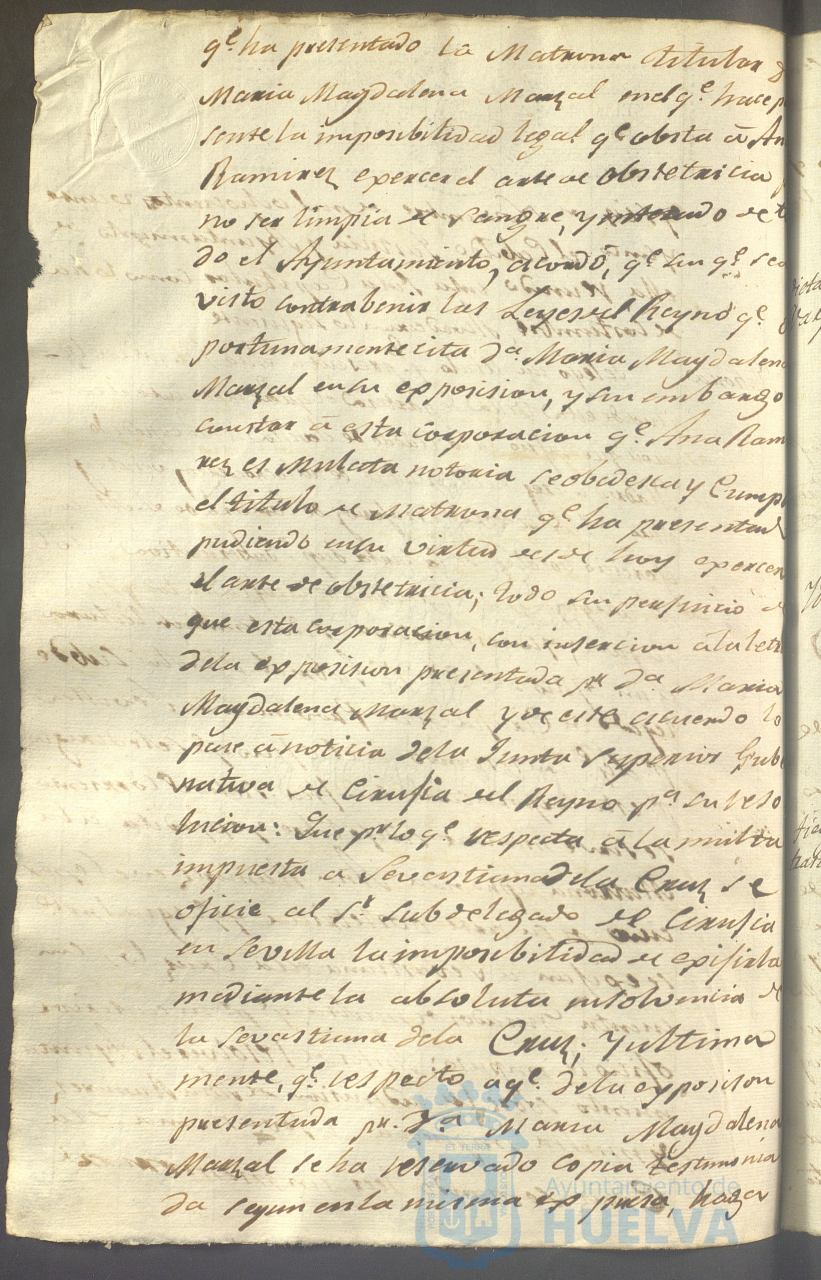 q.e ha presentado la Matrona titular D
Maria Magdalena Marzal en el q.e hace p
sente la imposibilidad legal q.e obsta á An
Ramirez exercer el arte de obstetricia p
no ser limpia de Sangre, y enterado de t
do el Ayuntamiento, acordó, q.e sin q.e sea
visto contrabenir las Leyes del Reyno q.e
portunamente cita D.a Maria Magdalen
Marzal en su exposision, y sin embargo
constar á esta corporacion q.e Ana Ram
rez es Mulata notoria se obedesca y Cump
el titulo de Matrona q.e ha presentad
pudiendo en su virtud desde hoy exercer
el arte de obstetricia; todo sin perjuicio d
que esta corporacion, con insercion á la letr
dela exposision presentada pr. D.a Maria
Magdalena Marzal y de este acuerdo lo
pase á noticia dela Junta Superior Gub
nativa de Cirujia del Reyno p.a su reso
lucion: Que pr. lo q.e respecta á la multa
impuesta a Sevastiana dela Cruz se
oficie al S.r Subdelegado de Cirujia
en Sevilla la imposibilidad de exijirla
mediante la absoluta insolvencia de
la Sevastiana dela Cruz; Y ultima
mente, q.e respecto a q.e dela exposison
presentada pr. D.a Maria Magdalena
Marzal se ha reservado copia testimonia
da segun en la misma expresa, haga
Ayuntamiento de
HUELVA